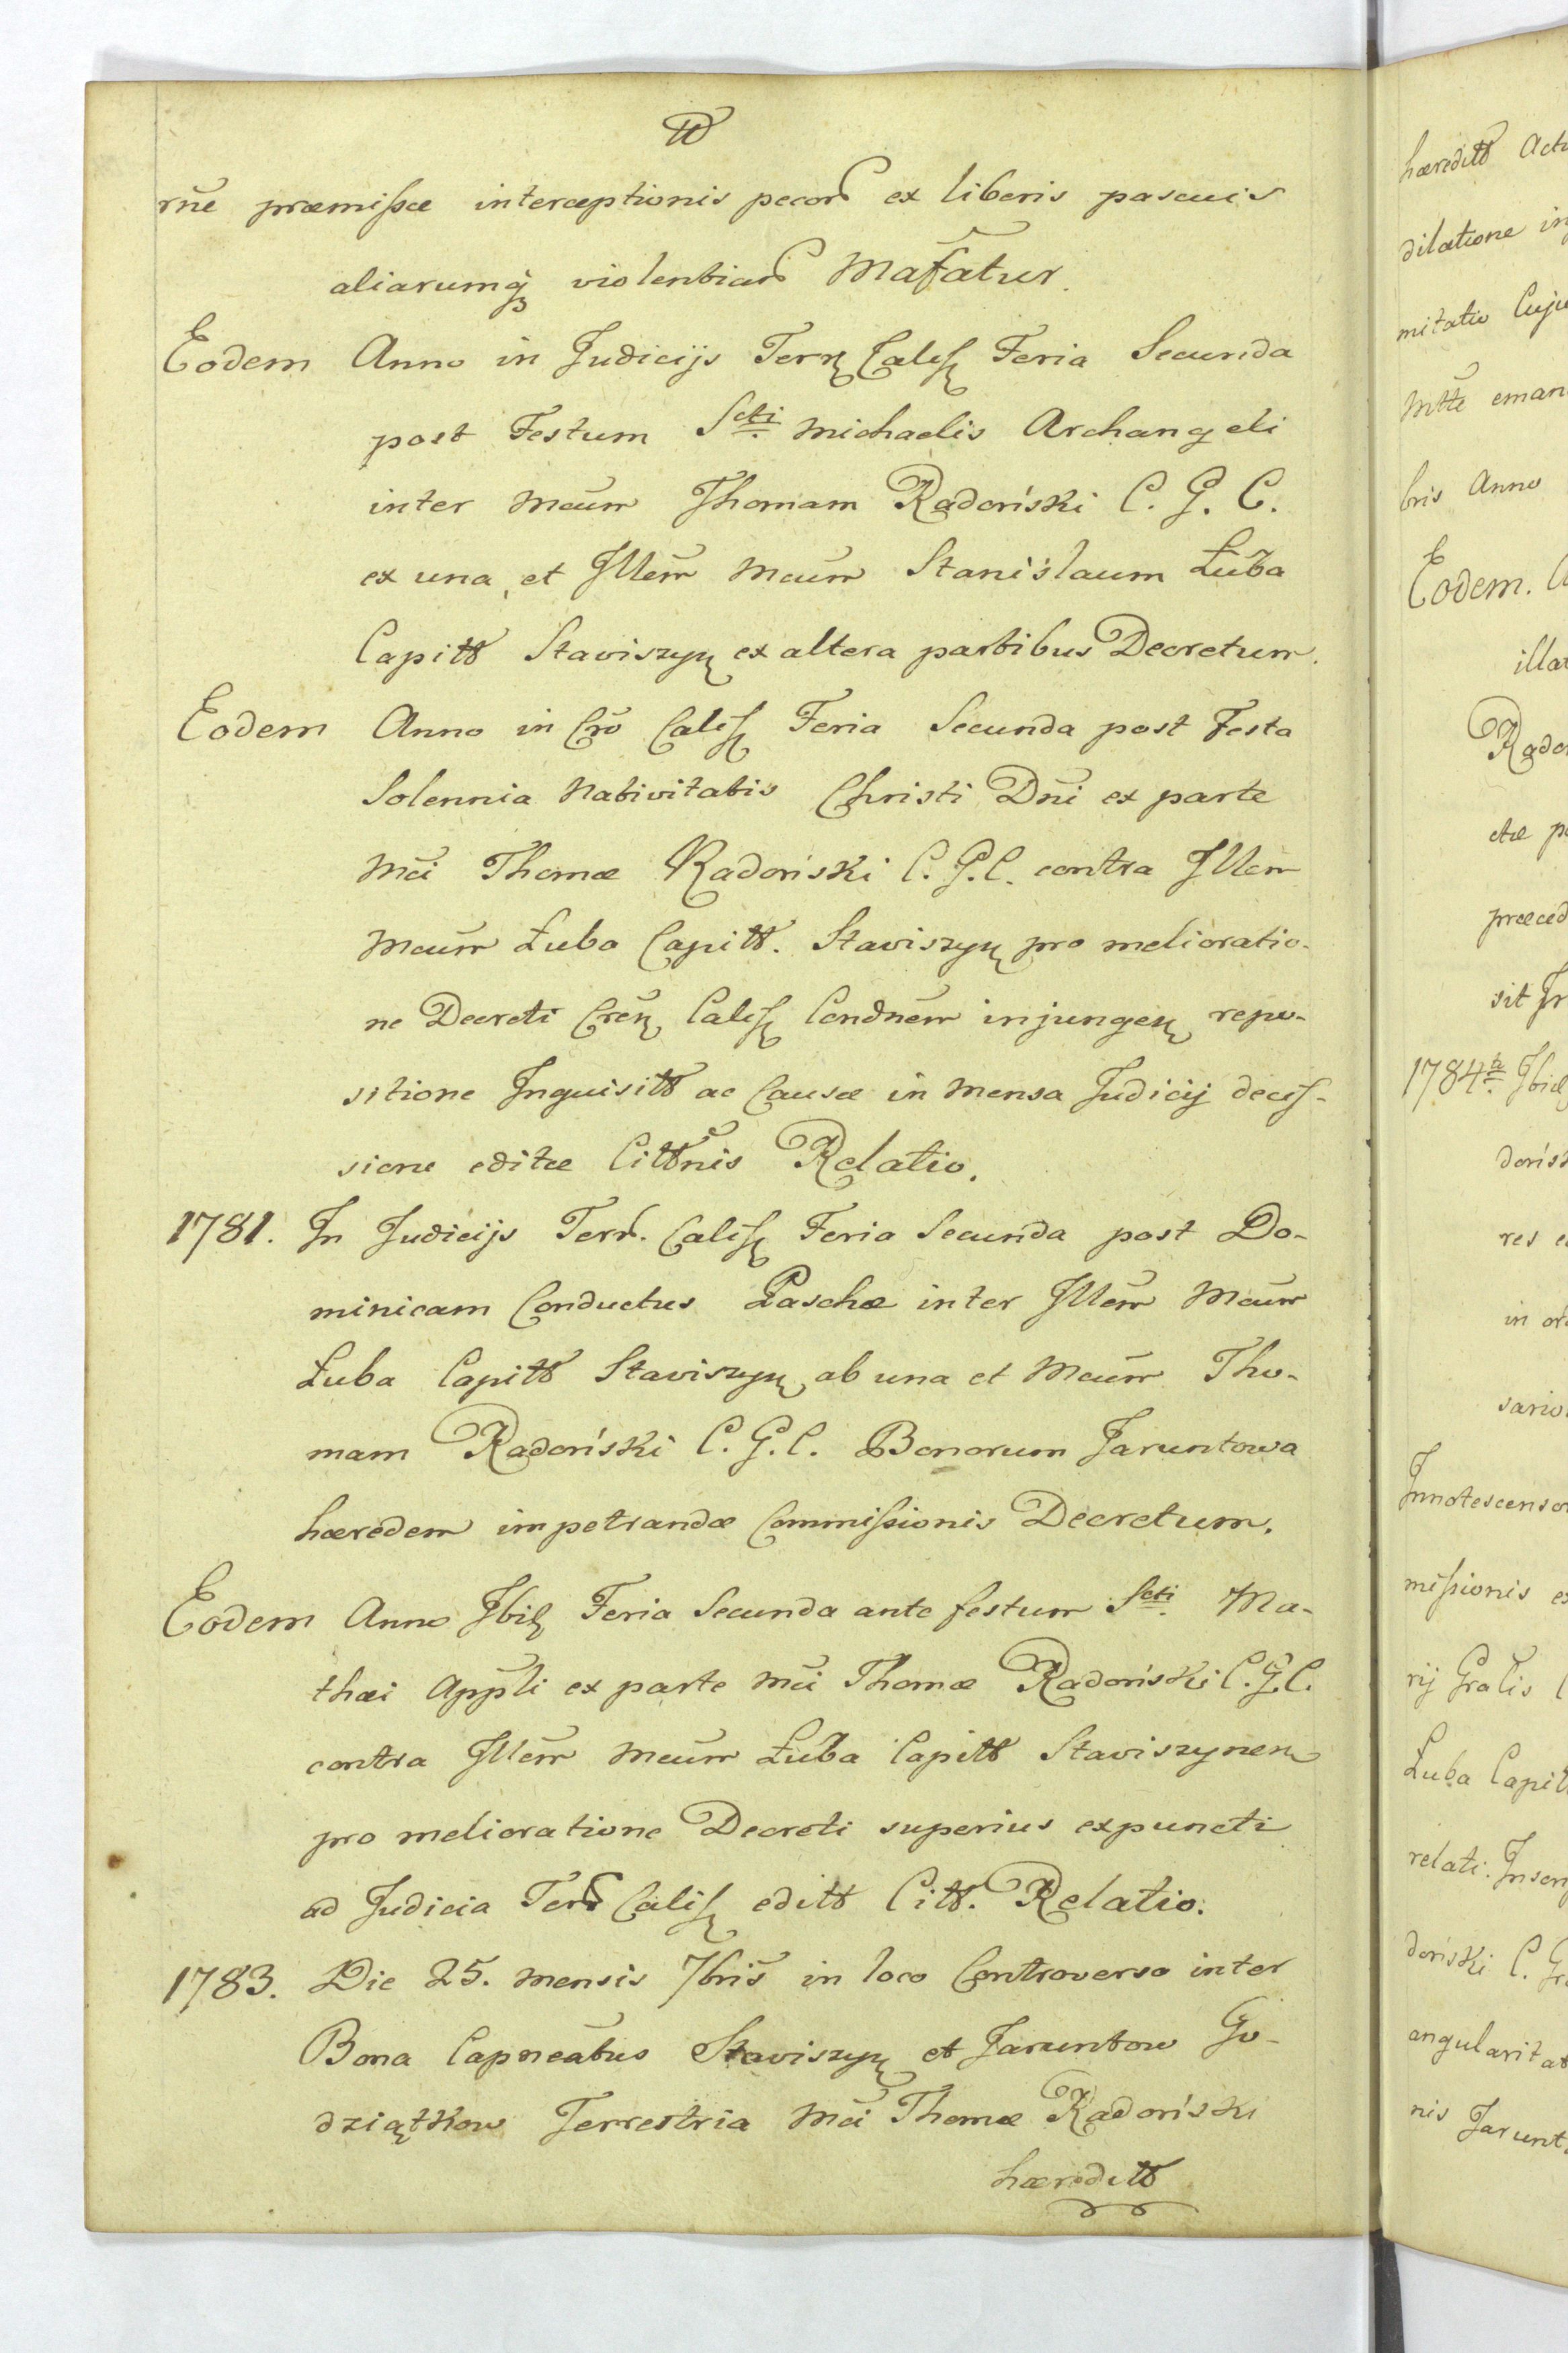 rne præmissæ interceptionis pecor ex liberis pascuis
aliarumq violentiar Mafatur.
Eodem Anno in Judicijs Terr Calis Feria Secunda
post Festum Scti Michaelis Archangeli
inter Mcum Thomam Radoński C. G. C.
ex una, et Illem Mcum Stanislaum Łuba
Capitt Staviszyn ex altera partibus Decretum.
Eodem Anno in Cro Calis Feria Secunda post Festa
Solennia Nativitatis Christi Dni ex parte
Mci Thomæ Radoński C. G. C. contra Illem
Mcum Łuba Capitt. Staviszyn pro melioratio-
ne Decreti Cren Calis Condnem injungen repo-
sitione Inquisitt ac Causæ in Mensa Judicij decis-
sione editæ Cittnis Relatio.
1781. In Judicijs Terr. Calis Feria Secunda post Do-
minicam Conductus Paschæ inter Illem Mcum
Łuba Capitt Staviszyn ab una et Mcum Tho-
mam Radoński C. G. C. Bonorum Jaruntowa
hæredem impetrandæ Commissionis Decretum.
Eodem Anno Ibid Feria Secunda ante festum Scti Ma-
thæi Appli ex parte Mci Thomæ Radoński C. G. C.
contra Illem Mcum Łuba Capitt Staviszynen
pro melioratione Decreti superius expuncti
ad Judicia Terr Calis editt Citt. Relatio.
1783. Die 25. Mensis 7bris in loco Controverso inter
Bona Capneatus Staviszyn et Jaruntow Go-
dziątkow Terrestria Mci Thomæ Radoński
hæreditt
hæreditt Act
dilatione in
mitatio Cuju
Mtte eman
bris Anno
Eodem. A
illa
Rado
ctæ p
præced
sit In
1784ta Ibid
dońsk
res e
in or
sario
Innotescenso
missionis e
rij Gratis C
Łuba Capit
relati. Inscri
doński C. G
angularitat
nis Jarunt